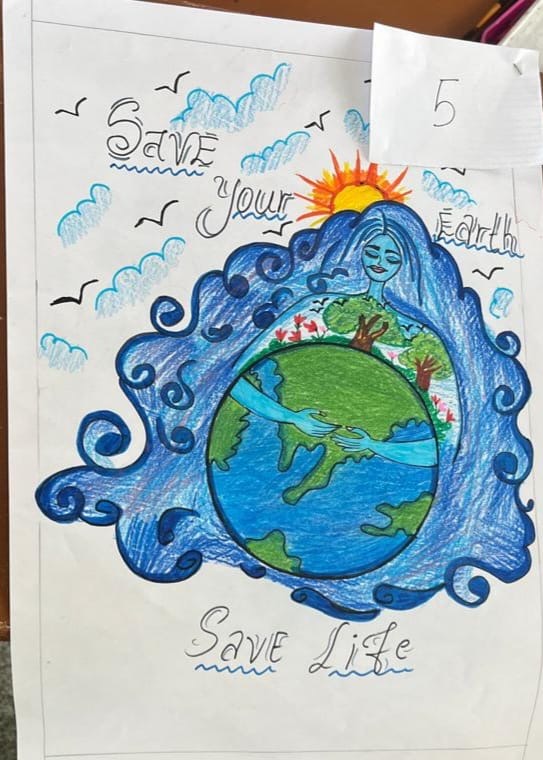 5
Save
Your
Earth
Save Life